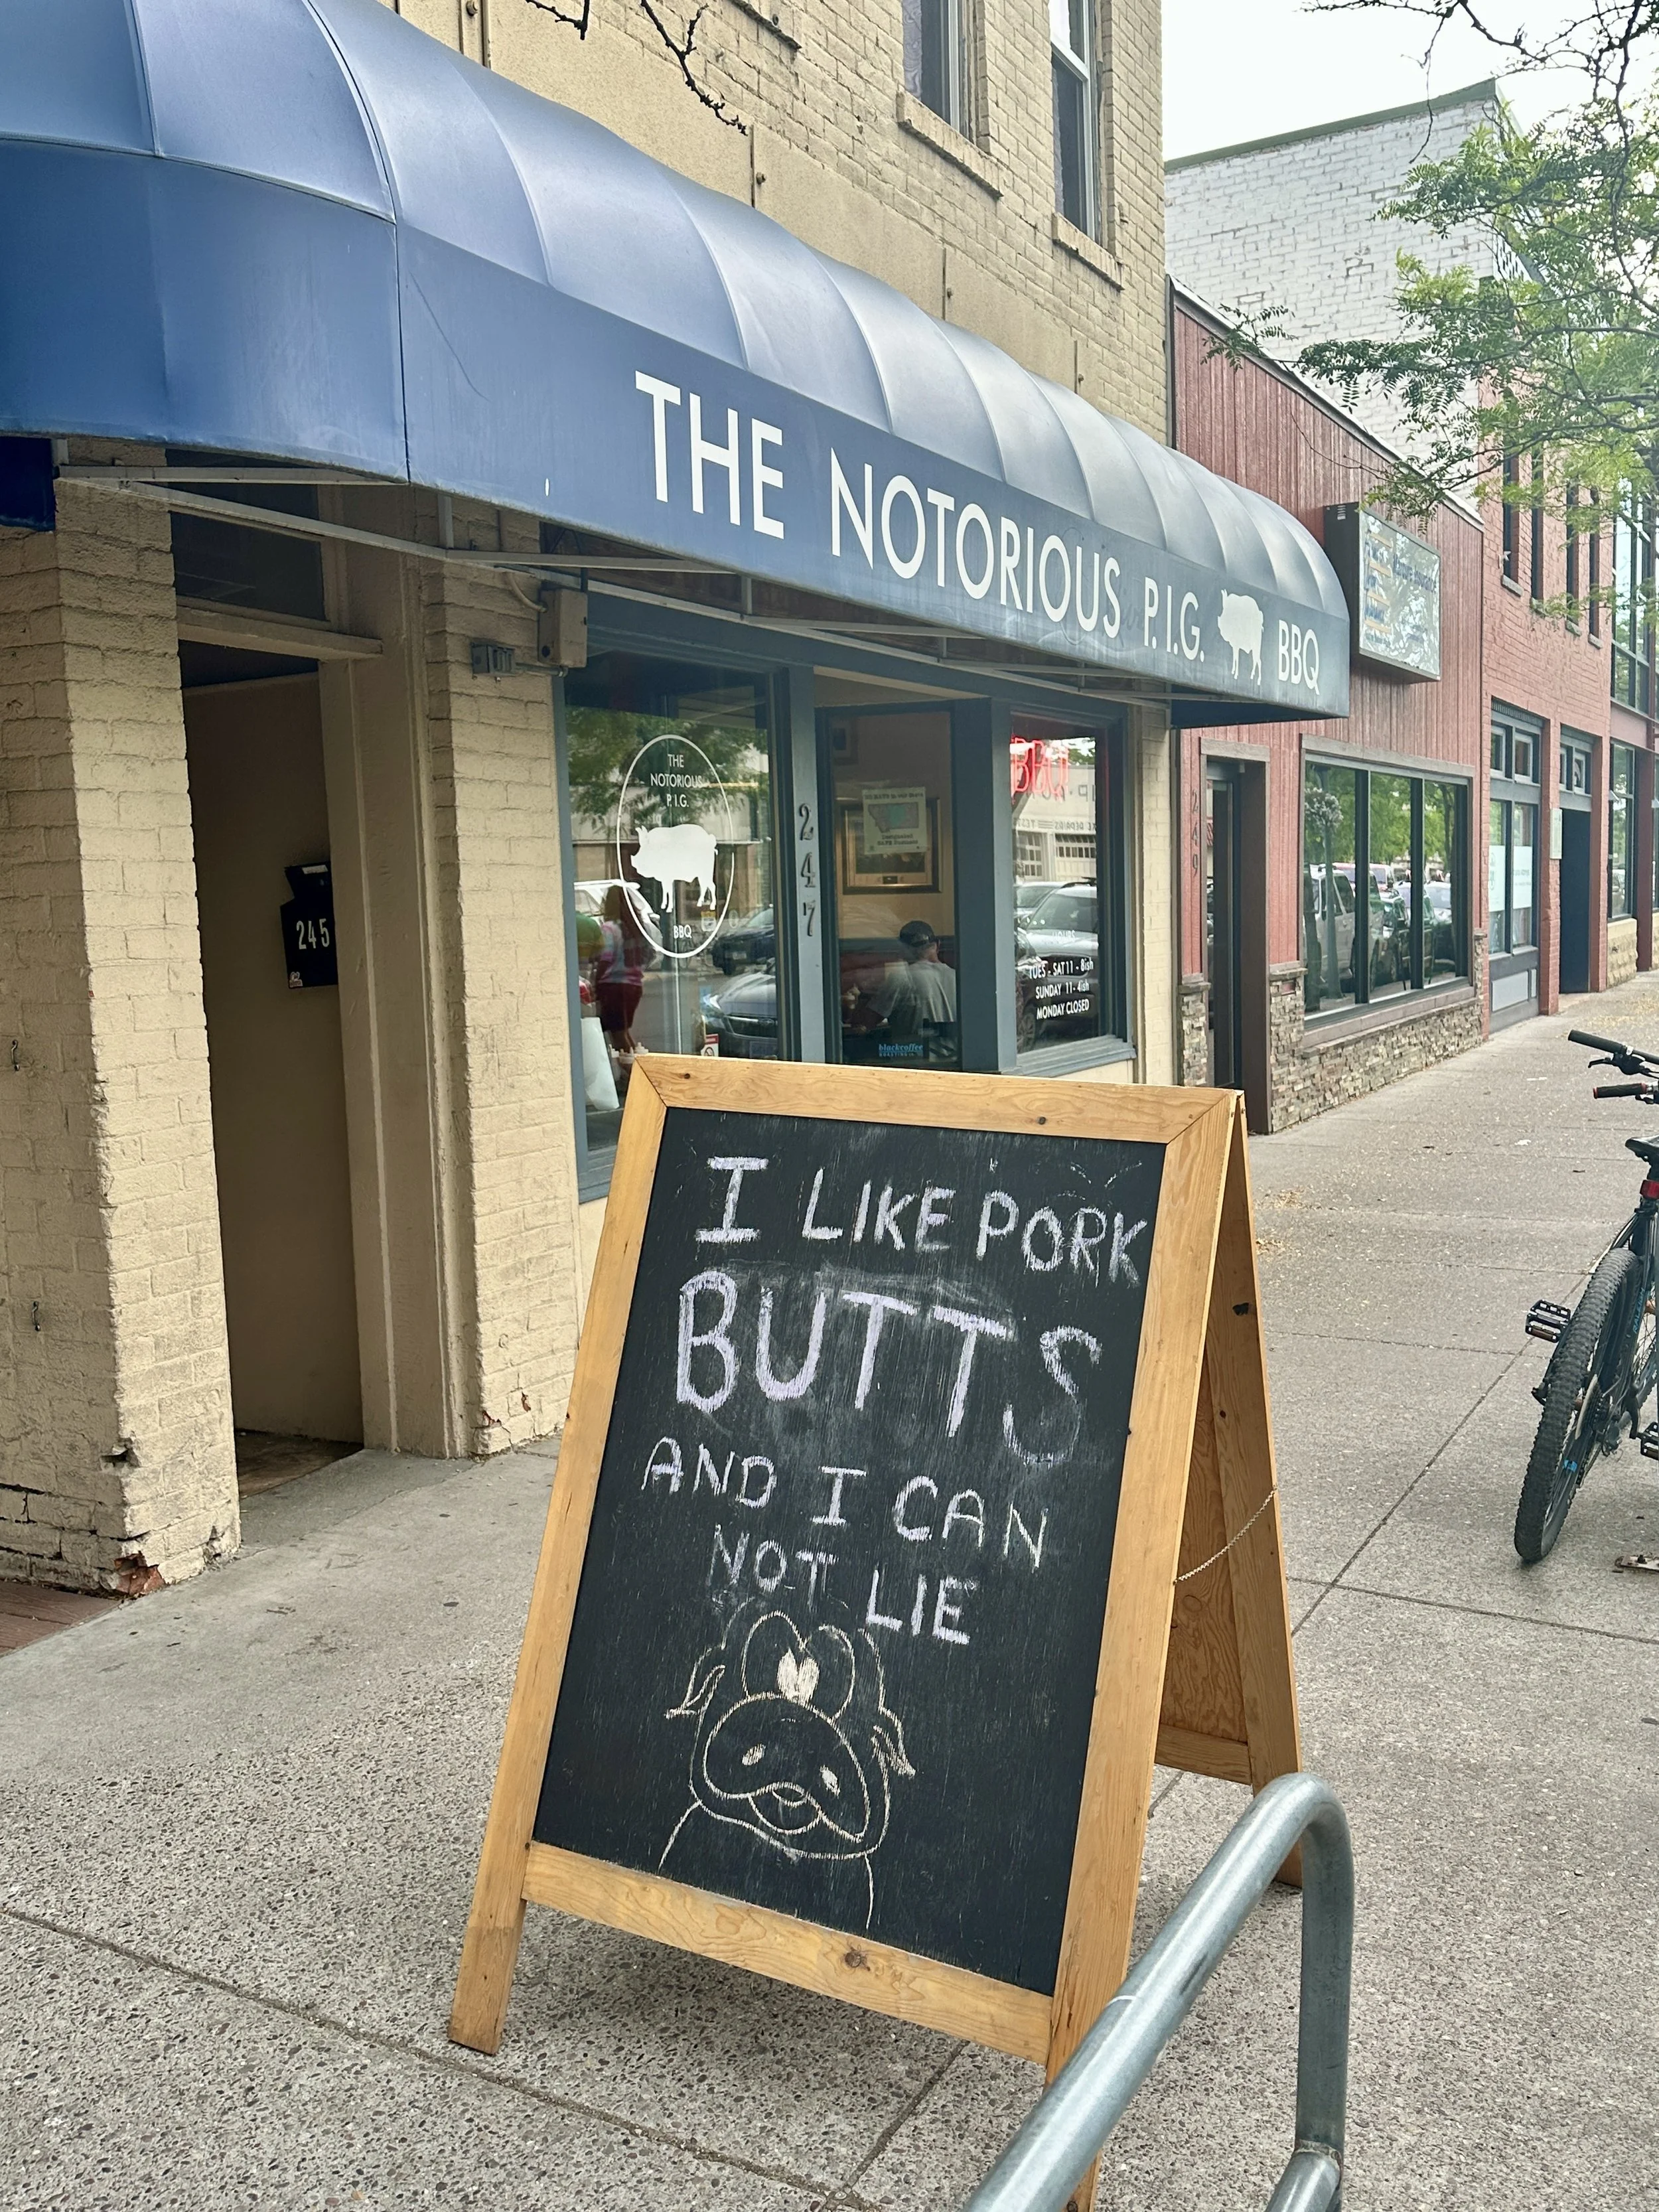 THE NOTORIOUS P.I.G. BBQ
THE
NOTORIOUS
P.I.G.
BBQ
247
245
249
TUES - SAT 11 - 8ish
SUNDAY 11 - 4ish
MONDAY CLOSED
blackcoffee
I LIKE PORK
BUTTS
AND I CAN
NOT LIE